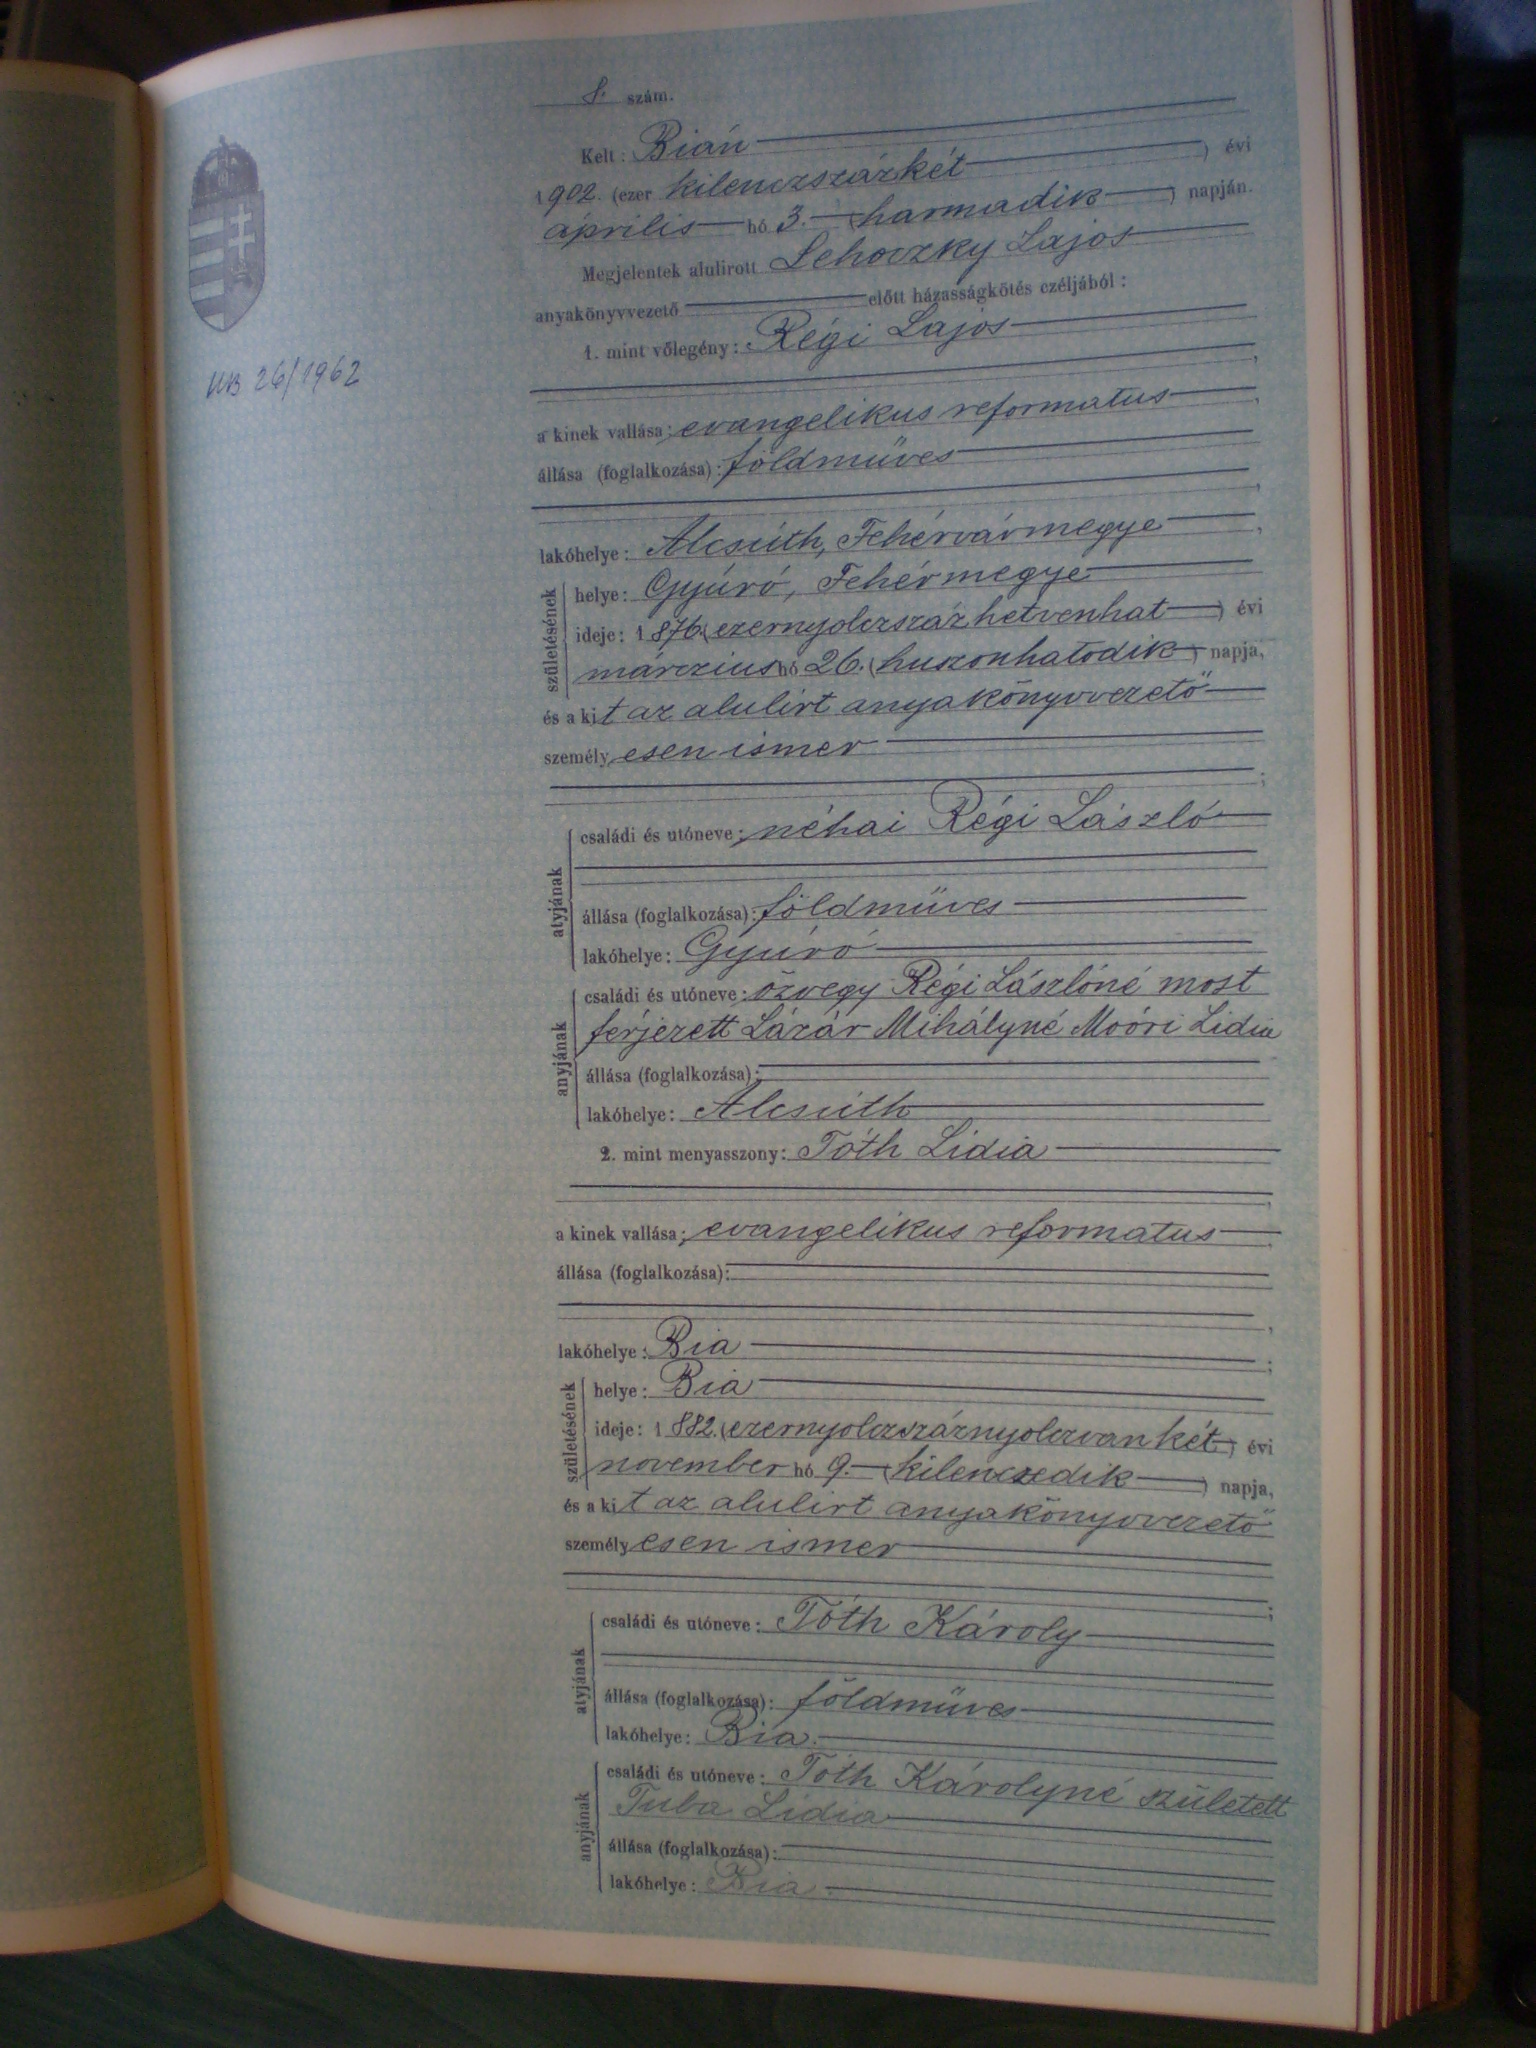 8. szám.
Kelt: Bián
1902. (ezer kilenczszázkét) évi
április hó 3. (harmadik) napján.
Megjelentek alulirott Lehoczky Lajos
anyakönyvvezető előtt házasságkötés czéljából:
1. mint vőlegény: Régi Lajos
UB 26/1962
a kinek vallása: evangelikus reformatus
állása (foglalkozása): földmüves
lakóhelye: Alcsúth, Fehérvármegye
születésének
helye: Gyúró, Fehérmegye
ideje: 1876. (ezernyolczszázhetvenhat) évi
márczius hó 26. (huszonhatodik) napja,
és a kit az alulírt anyakönyvvezető
személyesen ismer
atyjának
családi és utóneve: néhai Régi László
állása (foglalkozása): földmüves
lakóhelye: Gyúró
anyjának
családi és utóneve: özvegy Régi Lászlóné most
férjezett Lázár Mihályné Moóri Lidia
állása (foglalkozása):
lakóhelye: Alcsúth
2. mint menyasszony: Tóth Lidia
a kinek vallása: evangelikus reformatus
állása (foglalkozása):
lakóhelye: Bia
születésének
helye: Bia
ideje: 1882. (ezernyolczszáznyolczvankét) évi
november hó 9. (kilenczedik) napja,
és a kit az alulirt anyakönyvvezető
személyesen ismer
atyjának
családi és utóneve: Tóth Károly
állása (foglalkozása): földmüves
lakóhelye: Bia.
anyjának
családi és utóneve: Tóth Károlyné született
Tuba Lidia
állása (foglalkozása):
lakóhelye: Bia.